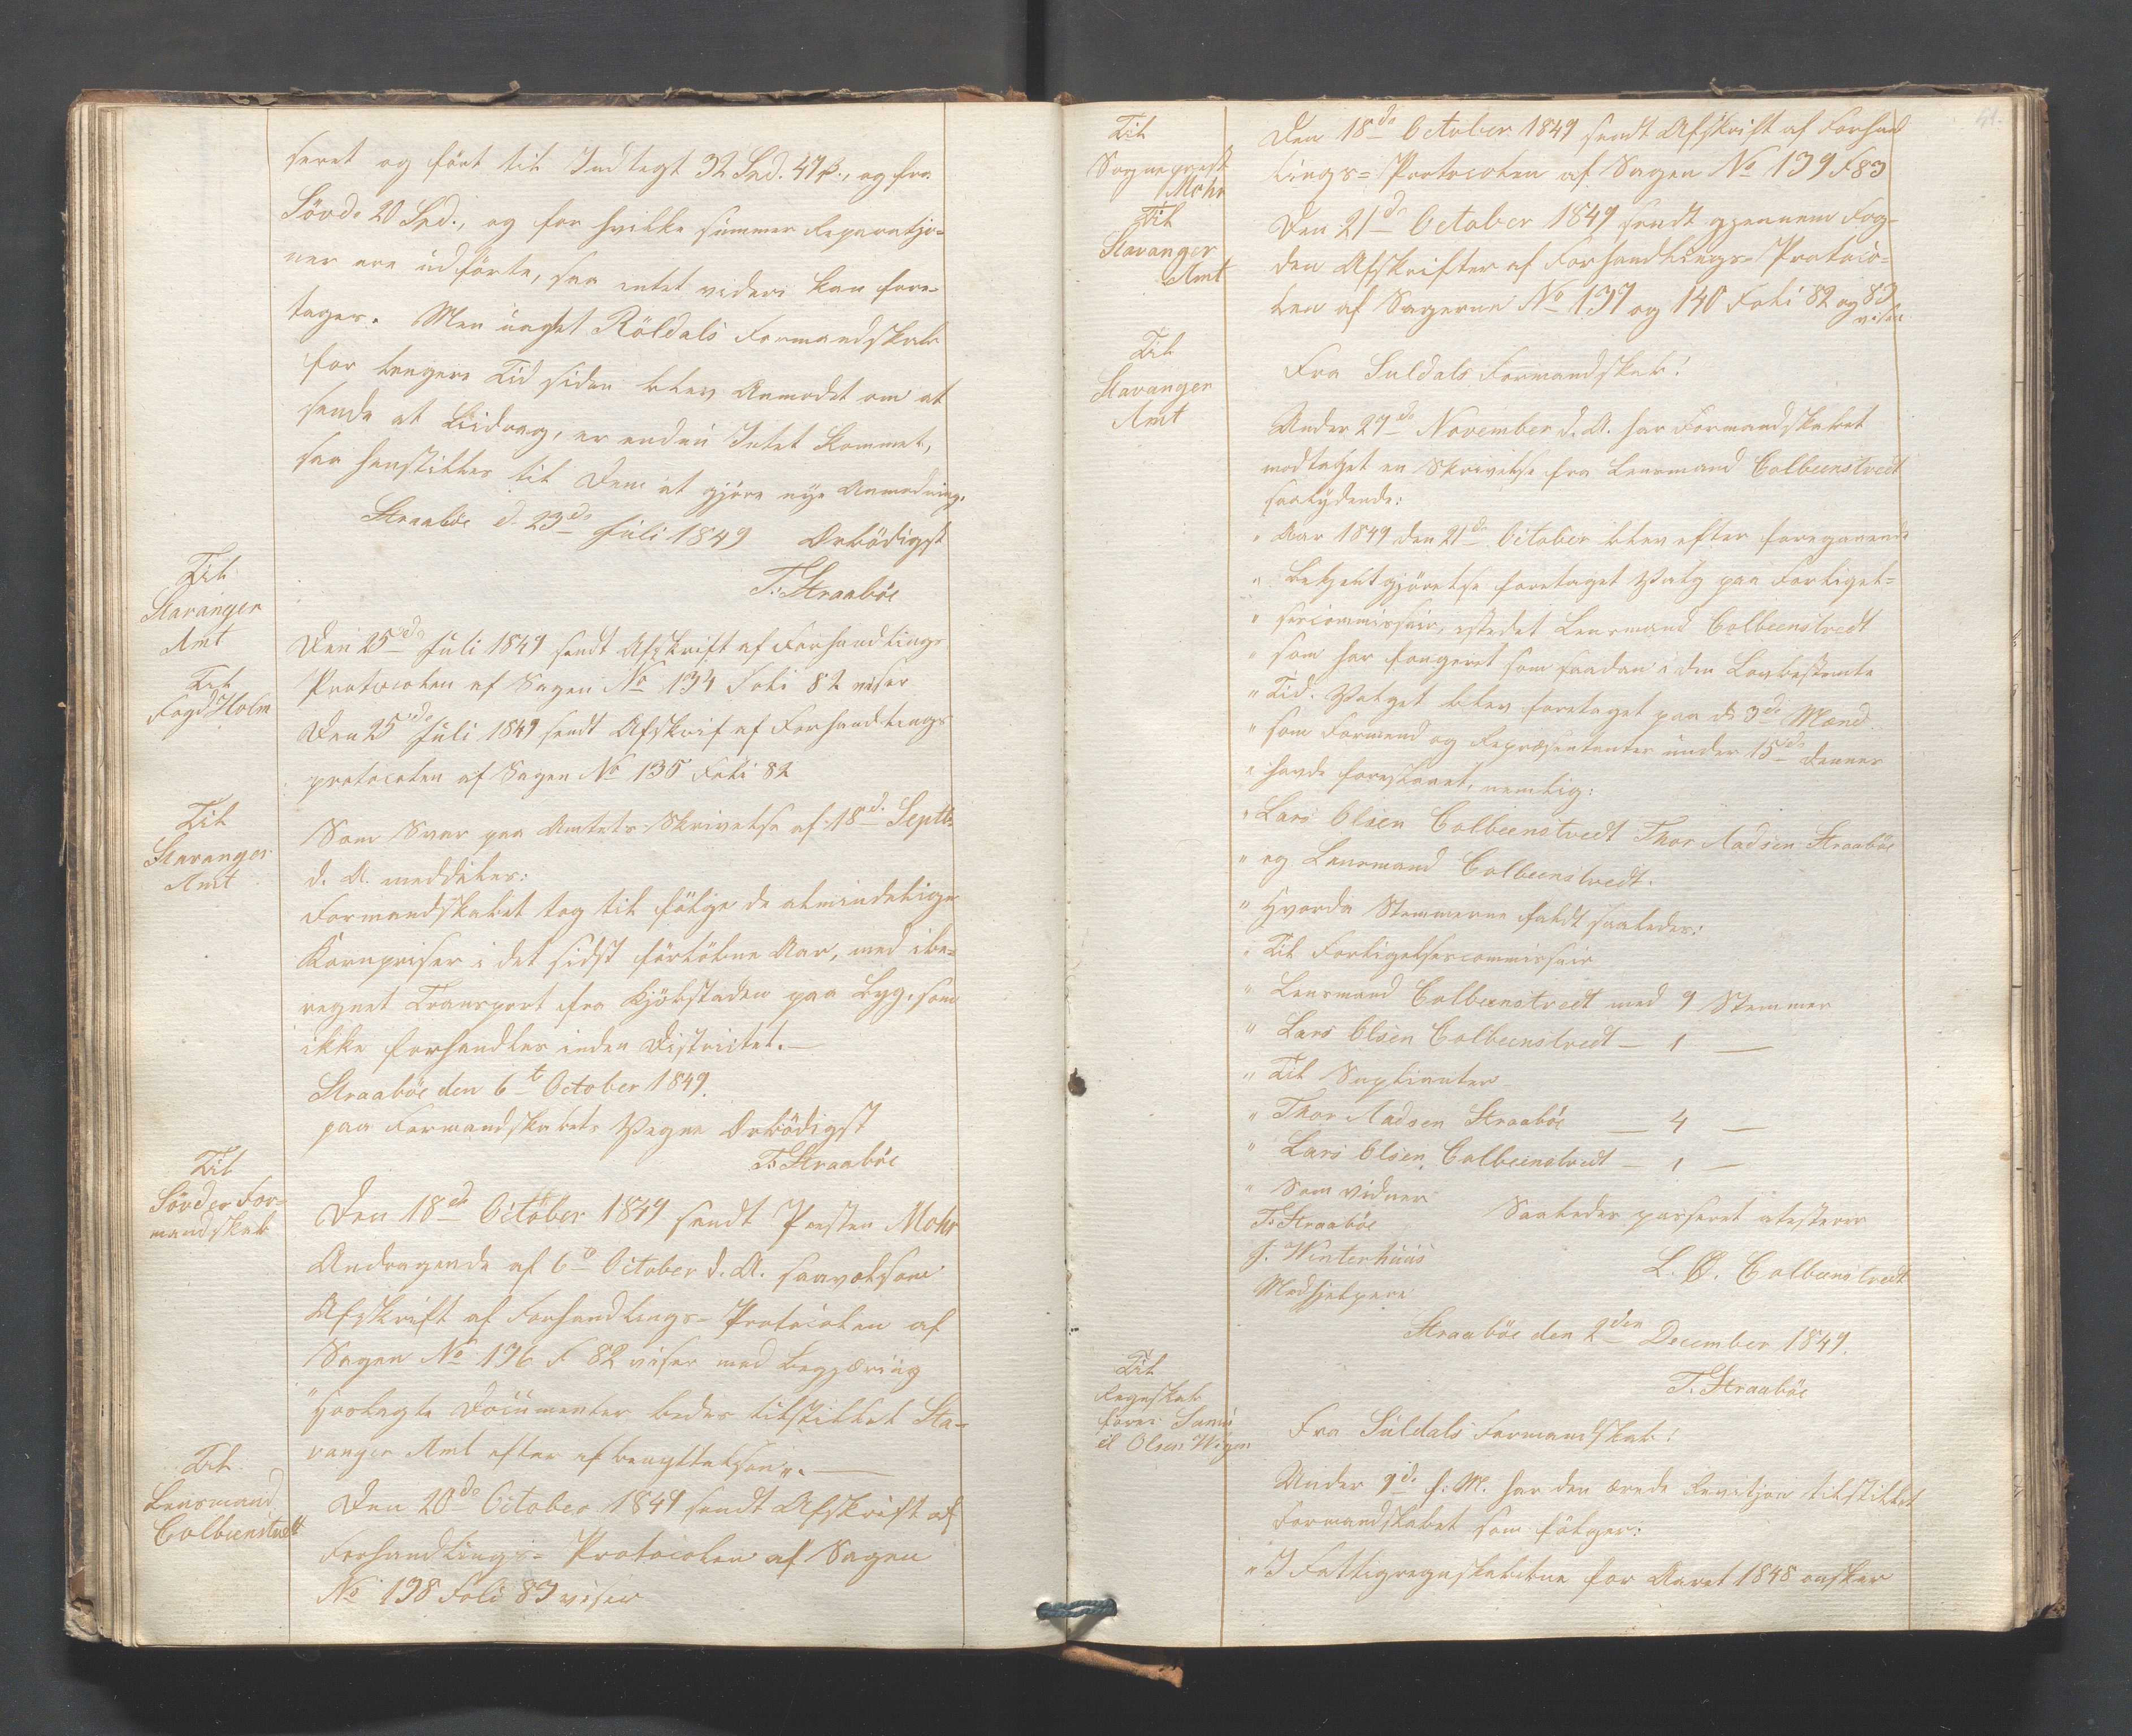 seret og ført til Indtegt 32 Spd. 47 ß., og fra
Søvde 20 Spd., og for hvilke summer Reparatjo-
ner ere udførte, saa intet videre kan fore-
tages. Men uagtet Röldals Formandskab
for lengere Tid siden blev Anmodet om at
sende et Bidrag, er endnu Intet kommet,
saa henstilles til Dem at gjøre nye Anmodning.
Straabøe d. 23de Juli 1849 Ærbødigst
T. Straabøe
Til
Stavanger
Amt
Den 25de Juli 1849 sendt Afskrift af Forhandlings
Protocolen af Sagen No 134 Foli 82 viser
Til
Fogd Holm
Den 25de Juli 1849 sendt Afskrif af Forhandlings
protocolen af Sagen No 135 Foli 82
Til
Stavanger
Amt
Som Svar paa Amtets Skrivelse af 18d. Septb.
d. A. meddeles:
Formandskabet tog til følge de almindelige
Kornpriser i det sidst forløbne Aar, med ibe-
regnet Transport fra Kjøbstaden paa Byg, som
ikke forhandles inden Districtet.—
Straabøe den 6t October 1849.
paa Formandskabets Vegne Ærbødigst
T. Straabøe
Til
Søvdes For-
mandskab
Den 18de October 1849 sendt Presten Mohr
Andragende af 6te October d. A. saavelsom
Afskrift af Forhandlings-Protocolen af
Sagen No 136 F 82 viser med Begjæring
"Hoslagte Documenter bedes tilstillet Sta-
vanger Amt efter afbenyttelsen".—
Til
Lensmand
Colbeenstvedt
Den 20de October 1849 sendt Afskrift af
Forhandlings-Protocolen af Sagen
No 138 Foli 83 viser
Til
Sogneprest
Mohr
Den 18de October 1849 sendt Afskrift af Forhand
lings-Protocolen af Sagen No 139 F 83
Til
Stavanger
Amt
Den 21de October 1849 sendt gjennem Fog-
den Afskrifter af Forhandlings-Protoco-
len af Sagerne No 137 og 140 Foli 82 og 83
viser
Til
Stavanger
Amt
Fra Suldals Formandskab!
Under 27de November d. A. har Formandskabet
modtaget en Skrivelse fra Lensmand Colbeenstvedt
saalydende:
" Aar 1849 den 21de October blev efter foregaaende
" Bekjentgjørelse foretaget Valg paa Forliget-
" sescommissair, istedet Lensmand Colbeenstvedt
" som har fongeret som saadan i den Lovbestemte
" Tid. Valget blev foretaget paa de 3de Mænd
" som Formend og Repræsentanter under 15de dennes
" havde foreslaaet, nemlig:
" Lars Olsen Colbeenstvedt Thor Aadsen Straabøe
" og Lensmand Colbeenstvedt.
" Hvorda Stemmerne faldt saaledes:
" Til Forligelsescommissair
" Lensmand Colbeenstvedt med 9 Stemmer
" Lars Olsen Colbeenstvedt — 1 —
" Til Suplianter
" Thor Aadsen Straabøe — 4 —
" Lars Olsen Colbeenstvedt — 1 —
" Som vidner Saaledes passeret atesterer
T. Straabøe
J. Winterhuus L. O. Colbeenstvedt
Medhjelpere
Straabøe den 2den December 1849.
T. Straabøe
Til
Regnskab
fører Samu
el Olsen Wigen
Fra Suldals Formandskab!
Under 9de f: M. har den ærede Revisjon tilstillet
Formandskabet som følger:
" I Fattigregnskaberne for Aaret 1848 ønsker